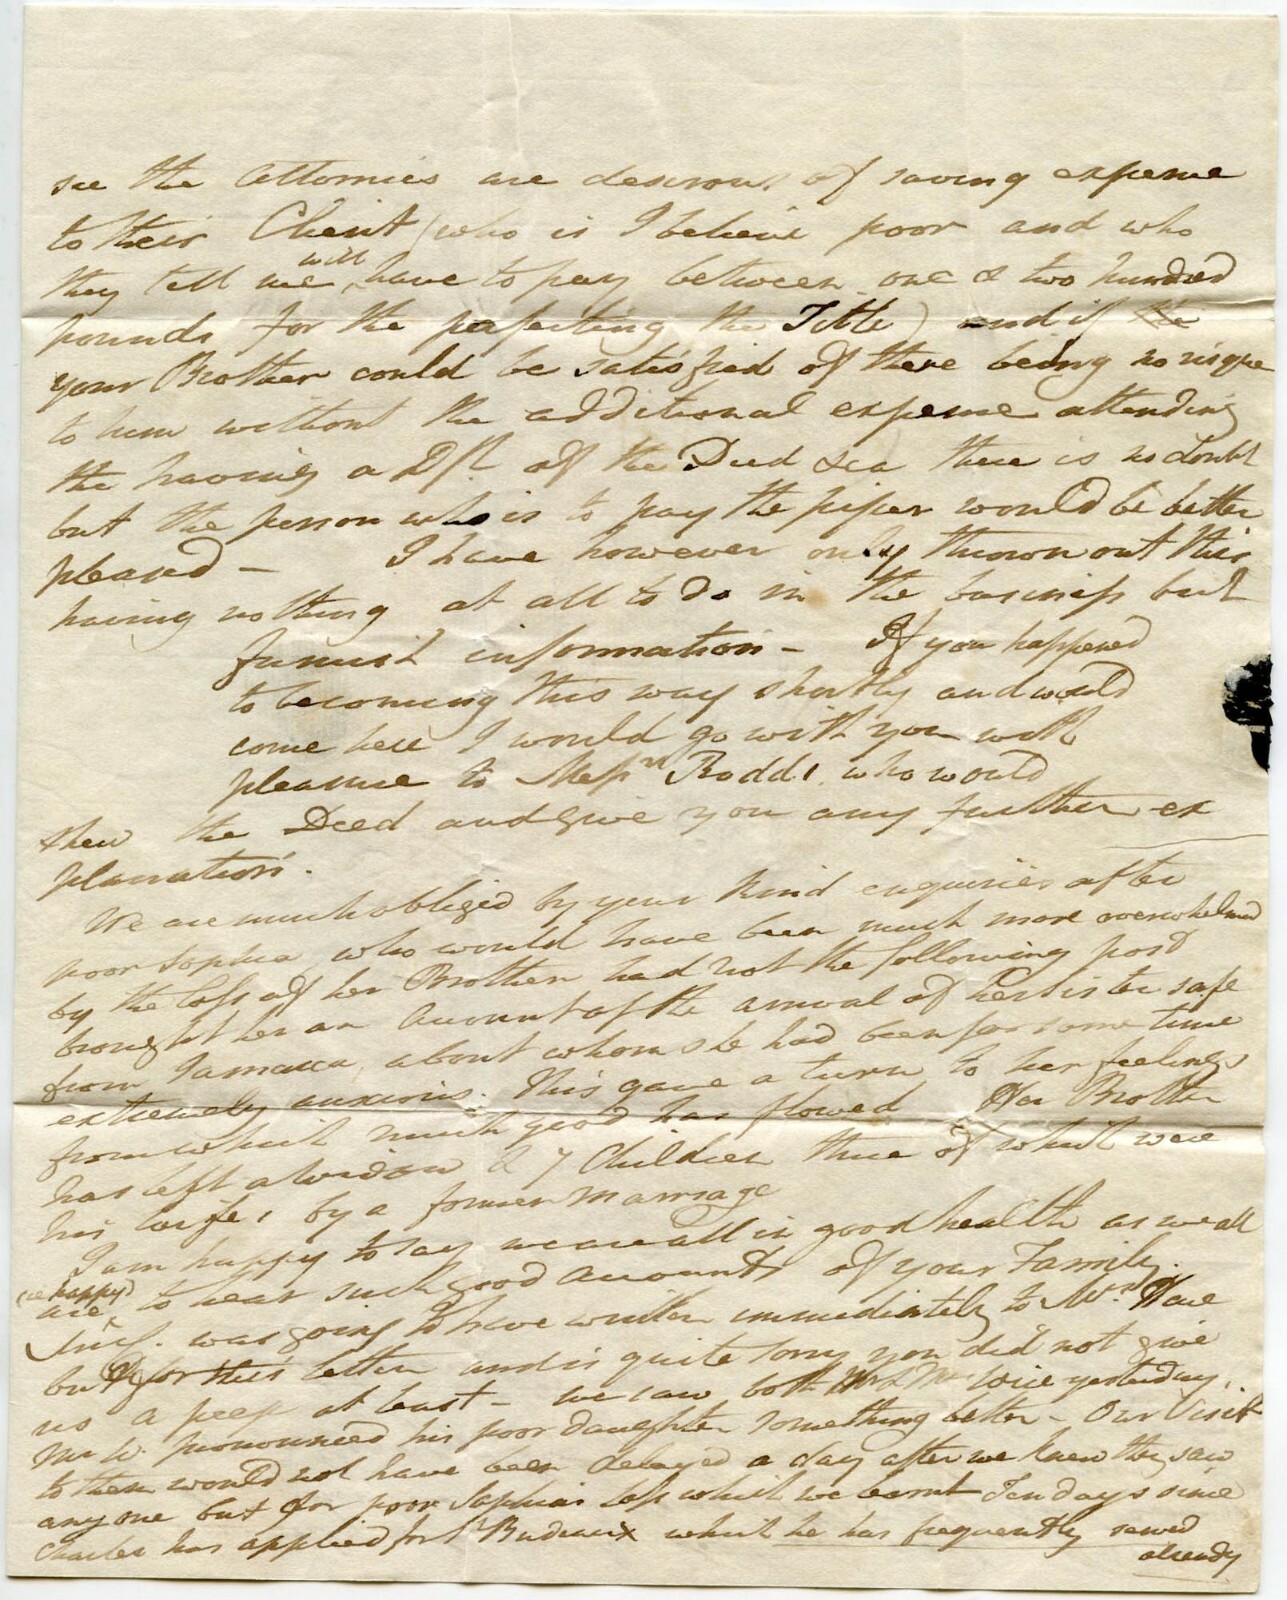 see the Attornies are desirous of saving expense
to their Client (who is I believe poor and who
they tell me will have to pay between one & two hundred
pounds for the perfecting the Title) and if the
your Brother could be satisfied of there being no risque
to him without the additional expense attending
the having a Dft of the Deed &ca there is no doubt
but the person who is to pay the piper would be better
pleased – I have however only thrown out this
having nothing at all to do in the business but
furnish information – If you happened
to be coming this way shortly and would
come here I would go with you with
pleasure to Messrs Rodds who would
shew the Deed and give you any further ex
planation.
We are much obliged by your kind enquiries after
poor Sophia who would have been much more overwhelmed
by the loss of her Brother had not the following post
brought her an Account of the arrival of her sister safe
from Jamaica, about whom she had been for some time
extremely anxious. This gave a turn to her feelings
from which much good has flowed Her Brother
has left a widow & 7 Children three of which were
his wife's by a former marriage
I am happy to say we are all in good health as we all
are (happy) to hear such good Accounts of your Family.
was going to have written immediately to Mrs. Hare
but for this letter and is quite sorry you did not give
us a peep at least – we saw both Mr & Mrs Wice yesterday.
Mr W. pronounced his poor daughter something better – Our Visit
to them would not have been delayed a day after we knew they saw
any one but for poor Sophia's loss which we learnt Ten days since
Charles has applied for St Budeaux which he has frequently served
already